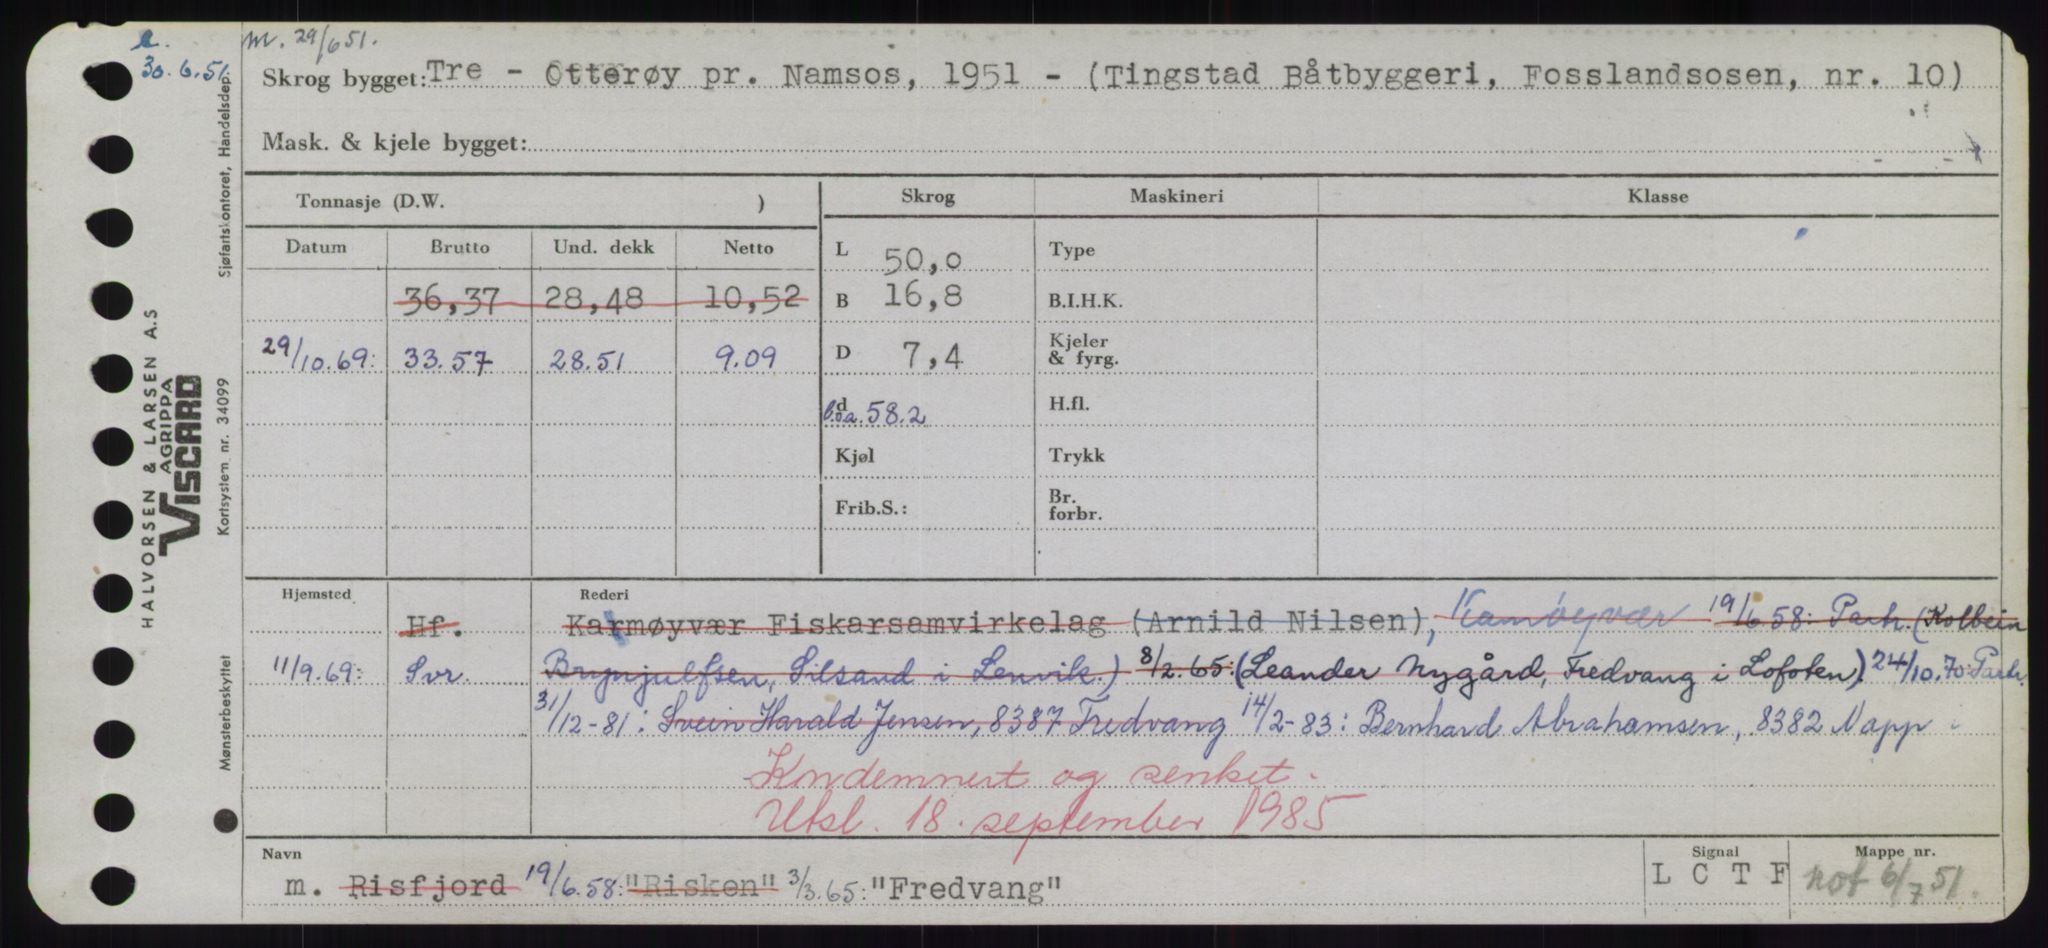 e. m. 29/6 51.
30.6.51.
Skrog bygget: Tre - Otterøy pr. Namsos, 1951 - (Tingstad Båtbyggeri, Fosslandsosen, nr. 10)
Mask. & kjele bygget:
Tonnasje (D.W. ) Skrog Maskineri Klasse
Datum Brutto Und. dekk Netto L 50,0 Type
36,37 28,48 10,52 B 16,8 B.I.H.K.
29/10.69: 33.57 28.51 9.09 D 7,4 Kjeler & fyrg.
d l.o.a. 58.2 H.fl.
Kjøl Trykk
Frib.S.: Br. forbr.
Hjemsted Rederi
Hf. Karmøyvær Fiskarsamvirkelag (Arnild Nilsen), Kamøyvær 19/6 58: Partr. (Kolbein
11/9.69: Svr. Brynjulfsen, Silsand i Lenvik.) 8/2.65: (Leander Nygård, Fredvang i Lofoten) 24/10.70: Partr.
31/12-81: Svein Harald Jensen, 8387 Fredvang 14/2-83: Bernhard Abrahamsen, 8382 Napp
Kondemnert og senket.
Utsl. 18. september 1985
Navn Signal Mappe nr.
m. Risfjord 19/6.58: "Risken" 3/3.65: "Fredvang" L C T F not 6/7 51.
HALVORSEN & LARSEN A.S
AGRIPPA
VISCARD
Sjøfartskontoret, Handelsdep.
Kortsystem nr. 34099
Mønsterbeskyttet